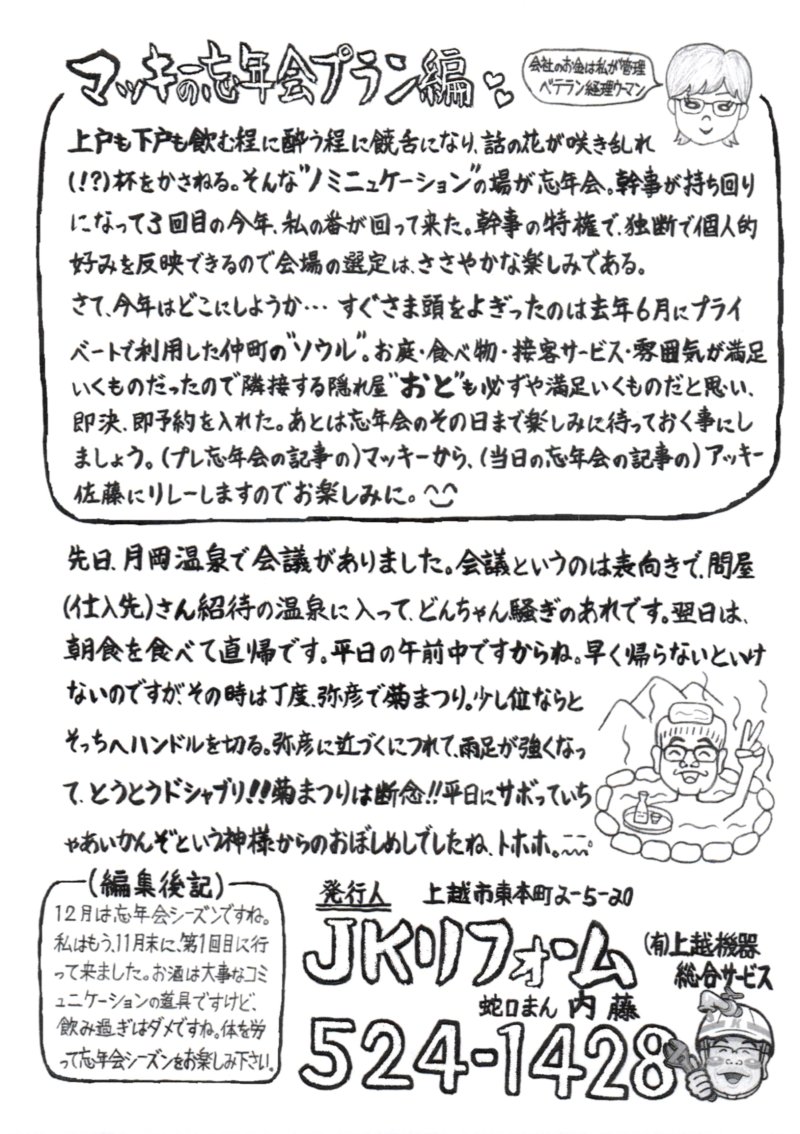 マッキーの忘年会プラン編
会社のお金は私が管理
ベテラン経理ウーマン
上戸も下戸も飲む程に酔う程に饒舌になり、話の花が咲き乱れ
(!?)杯をかさねる。そんな"ノミニュケーション"の場が忘年会。幹事が持ち回り
になって3回目の今年、私の番が回って来た。幹事の特権で、独断で個人的
好みを反映できるので会場の選定は、ささやかな楽しみである。
さて、今年はどこにしようか… すぐさま頭をよぎったのは去年6月にプライ
ベートで利用した仲町の"ソウル"。お庭・食べ物・接客サービス・雰囲気が満足
いくものだったので隣接する隠れ屋"おと"も必ずや満足いくものだと思い、
即決、即予約を入れた。あとは忘年会のその日まで楽しみに待っておく事にし
ましょう。(プレ忘年会の記事の)マッキーから、(当日の忘年会の記事の)アッキー
佐藤にリレーしますのでお楽しみに。
先日、月岡温泉で会議がありました。会議というのは表向きで、問屋
(仕入先)さん紹待の温泉に入って、どんちゃん騒ぎのあれです。翌日は、
朝食を食べて直帰です。平日の午前中ですからね。早く帰らないといけ
ないのですが、その時は丁度、弥彦で菊まつり。少し位ならと
そっちへハンドルを切る。弥彦に近づくにつれて、雨足が強くなっ
て、とうとうドシャブリ!!菊まつりは断念!!平日にサボっていち
ゃあいかんぞという神様からのおぼしめしでしたね、トホホ。
(編集後記)
12月は忘年会シーズンですね。
私はもう、11月末に、第1回目に行
って来ました。お酒は大事なコミ
ュニケーションの道具ですけど、
飲み過ぎはダメですね。体を労
って忘年会シーズンをお楽しみ下さい。
発行人 上越市東本町2-5-20
JKリフォーム
(有)上越機器
総合サービス
蛇口まん 内藤
524-1428